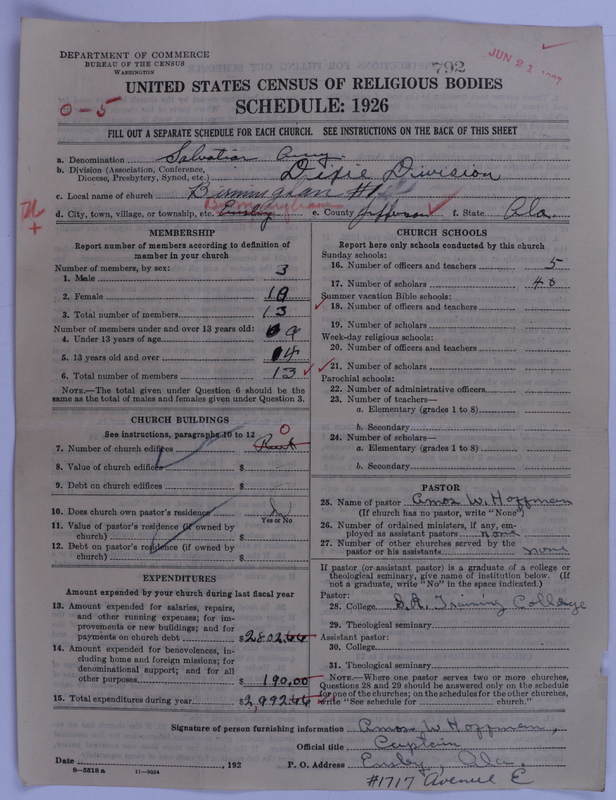 DEPARTMENT OF COMMERCE
BUREAU OF THE CENSUS
WASHINGTON
792
JUN 21
UNITED STATES CENSUS OF RELIGIOUS BODIES
SCHEDULE: 1926
0-5
FILL OUT A SEPARATE SCHEDULE FOR EACH CHURCH. SEE INSTRUCTIONS ON THE BACK OF THIS SHEET
a. Denomination Salvation Army
b. Division (Association, Conference, Diocese, Presbytery, Synod, etc.) Dixie Division
c. Local name of church Birmingham #1
Birmingham
d. City, town, village, or township, etc. Ensley e. County Jefferson f. State Ala.
MEMBERSHIP
Report number of members according to definition of
member in your church
Number of members, by sex:
1. Male 3
2. Female 10
3. Total number of members 13
Number of members under and over 13 years old:
4. Under 13 years of age 9
5. 13 years old and over 4
6. Total number of members 13
NOTE.—The total given under Question 6 should be
same as the total of males and females given under Question 3.
CHURCH BUILDINGS
See instructions, paragraphs 10 to 12
7. Number of church edifices Rent 0
8. Value of church edifices $
9. Debt on church edifices $
10. Does church own pastor's residence
Yes or No
11. Value of pastor's residence (if owned by
church) $
12. Debt on pastor's residence (if owned by
church) $
EXPENDITURES
Amount expended by your church during last fiscal year
13. Amount expended for salaries, repairs,
and other running expenses; for im-
provements or new buildings; and for
payments on church debt $2802.66
14. Amount expended for benevolences, in-
cluding home and foreign missions; for
denominational support; and for all
other purposes $190.00
15. Total expenditures during year $2,992.66
CHURCH SCHOOLS
Report here only schools conducted by this church
Sunday schools:
16. Number of officers and teachers 5
17. Number of scholars 40
Summer vacation Bible schools:
18. Number of officers and teachers
19. Number of scholars
Week-day religious schools:
20. Number of officers and teachers
21. Number of scholars
Parochial schools:
22. Number of administrative officers
23. Number of teachers—
a. Elementary (grades 1 to 8)
b. Secondary
24. Number of scholars—
a. Elementary (grades 1 to 8)
b. Secondary
PASTOR
25. Name of pastor Amos W. Hoffman
(If church has no pastor, write "None")
26. Number of ordained ministers, if any, em-
ployed as assistant pastors none
27. Number of other churches served by the
pastor or his assistants none
If pastor (or assistant pastor) is a graduate of a college or
theological seminary, give name of institution below. (If
not a graduate, write "No" in the space indicated.)
Pastor:
28. College S.A. Training College
29. Theological seminary
Assistant pastor:
30. College
31. Theological seminary
NOTE.—Where one pastor serves two or more churches,
Questions 28 and 29 should be answered only on the schedule
for one of the churches; on the schedules for the other churches,
write "See schedule for church."
Signature of person furnishing information Amos W. Hoffman,
Official title Captain
Date , 192 P. O. Address Ensley, Ala.
8-5518 a 11-9034 #1717 Avenue E